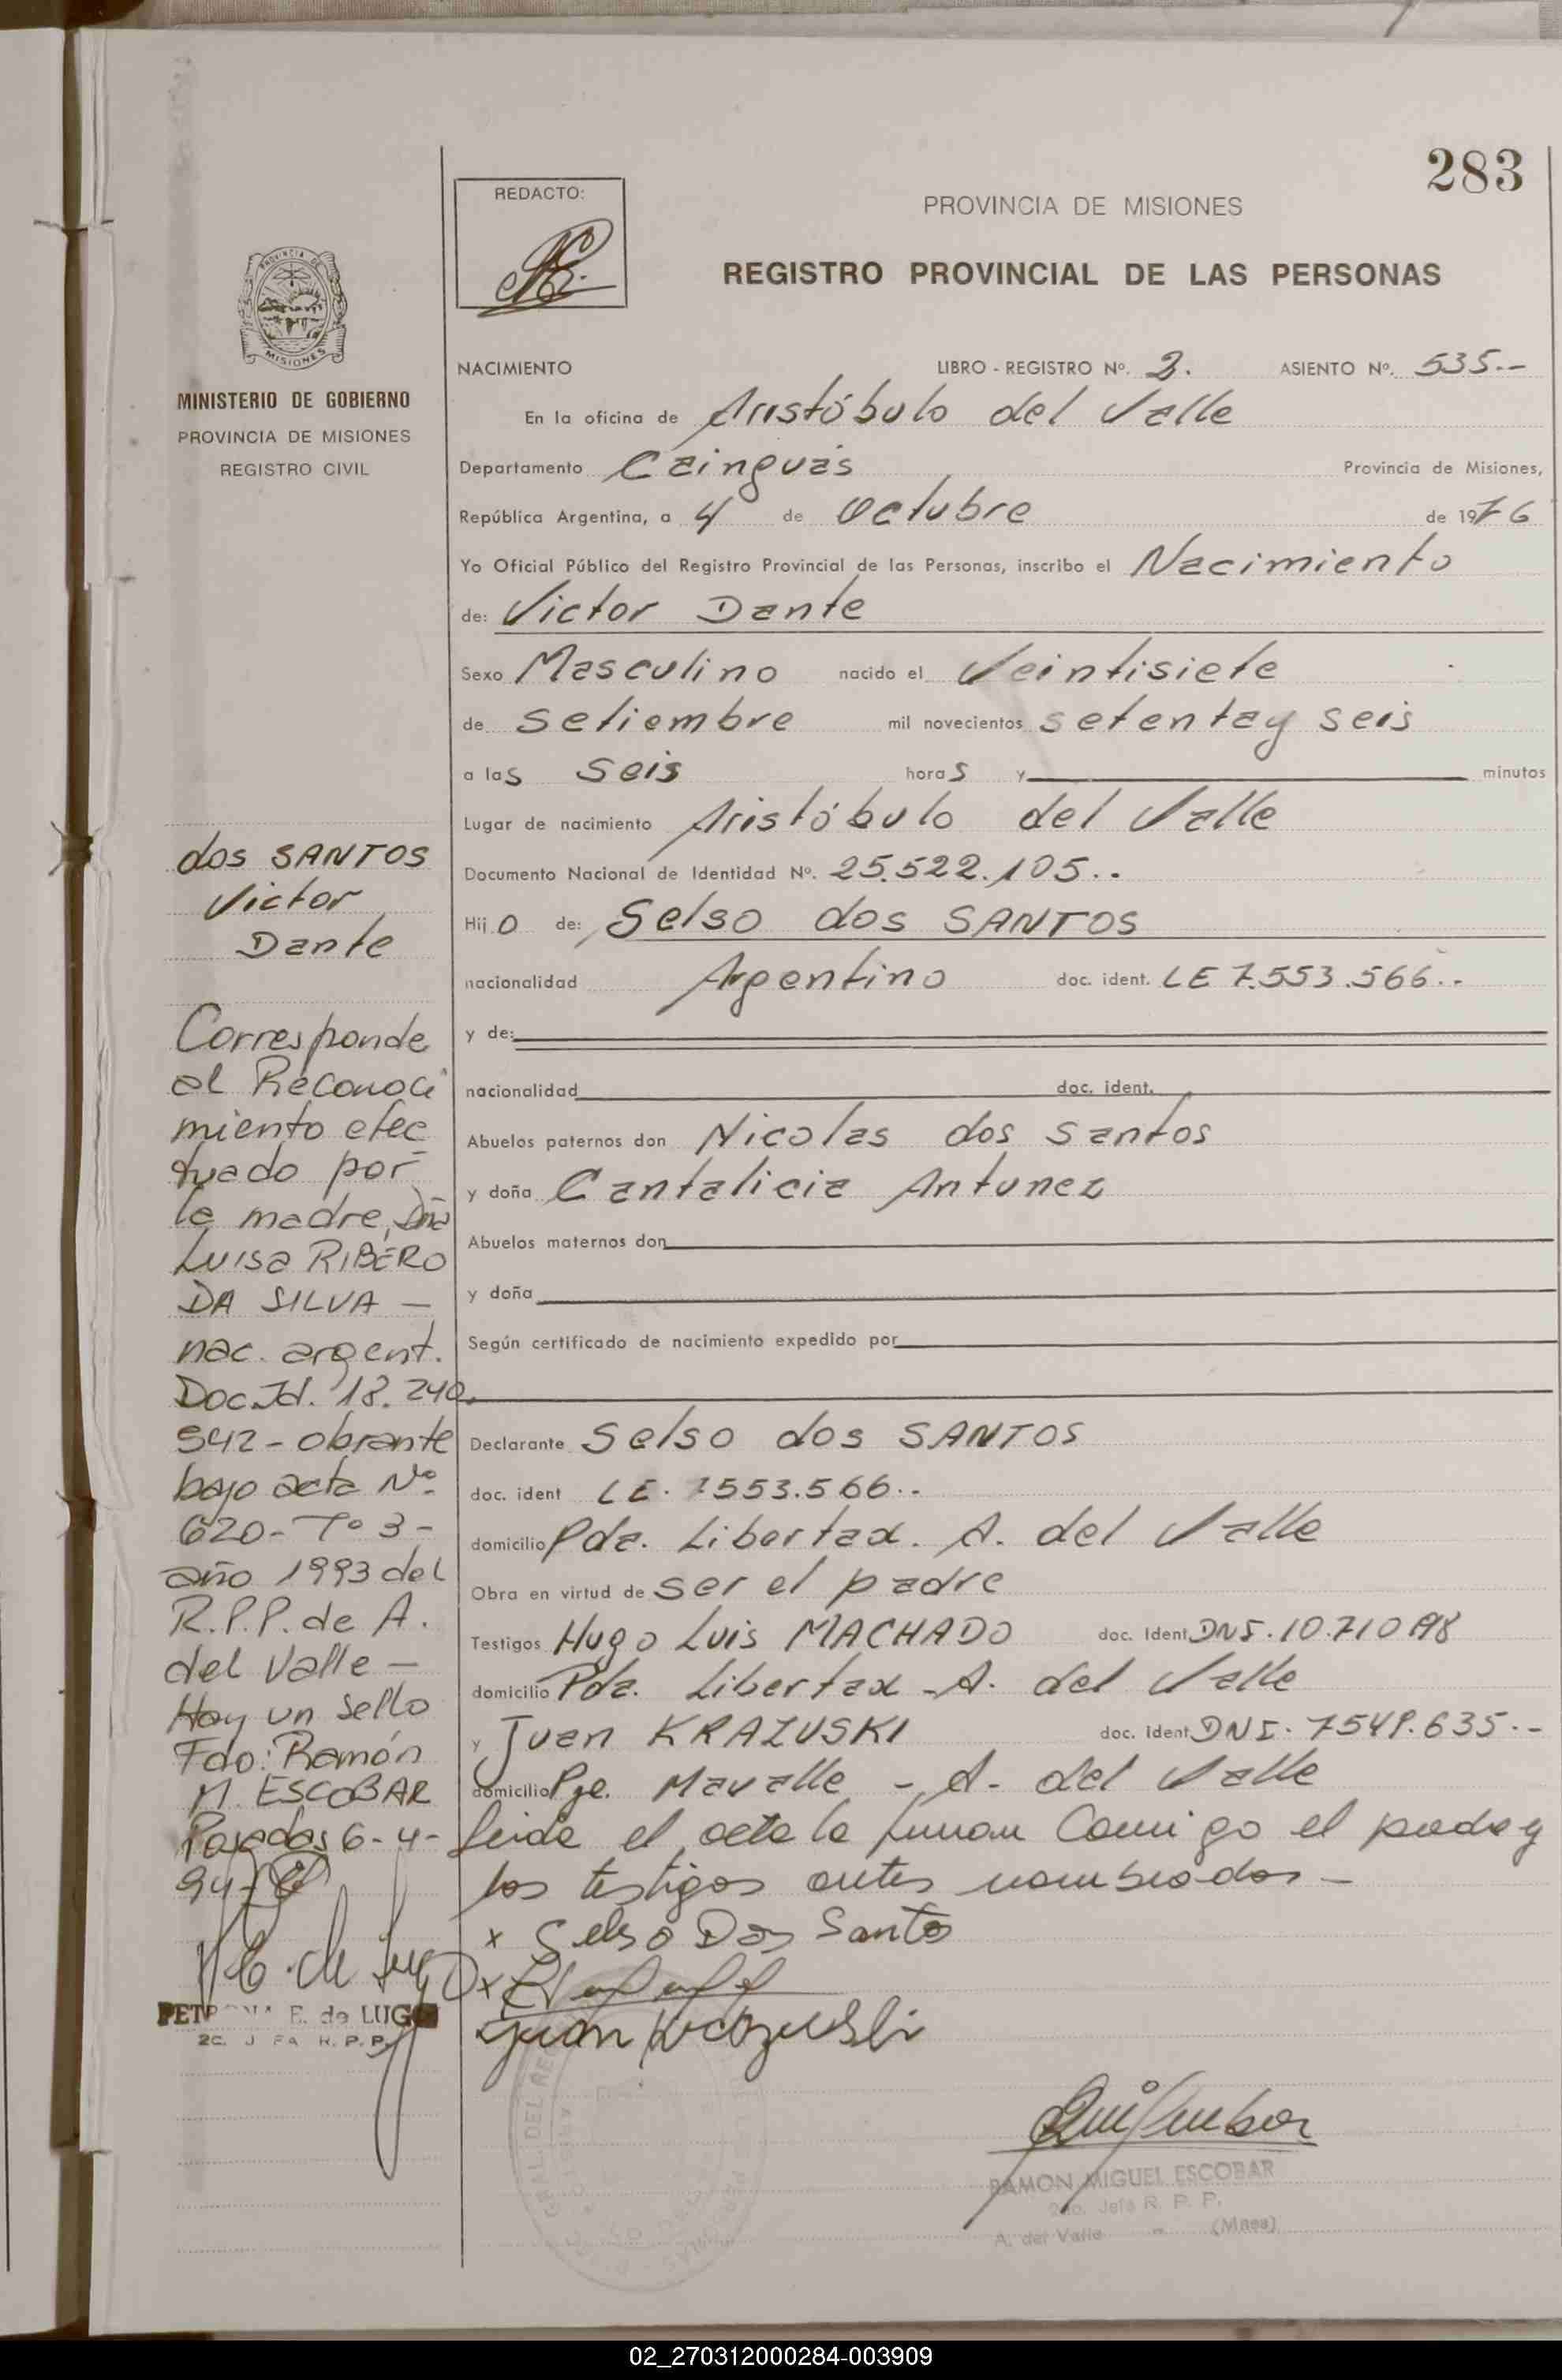 283
REDACTO:
PROVINCIA DE MISIONES
REGISTRO PROVINCIAL DE LAS PERSONAS
PROVINCIA DE
MISIONES
MINISTERIO DE GOBIERNO
PROVINCIA DE MISIONES
REGISTRO CIVIL
NACIMIENTO LIBRO - REGISTRO Nº. 2. ASIENTO Nº. 535.-
En la oficina de Aristóbulo del Valle
Departamento Cainguás Provincia de Misiones,
República Argentina, a 4 de Octubre de 1976
Yo Oficial Público del Registro Provincial de las Personas, inscribo el Nacimiento
de: Victor Dante
Sexo Masculino nacido el Veintisiete
de Setiembre mil novecientos setentay seis
a las seis horas y minutos
Lugar de nacimiento Aristóbulo del Valle
Documento Nacional de Identidad Nº. 25.522.105..
Hijo de: Selso dos SANTOS
nacionalidad Argentino doc. ident. LE 7.553.566..
y de:
nacionalidad doc. ident.
Abuelos paternos don Nicolas dos santos
y doña Cantalicia Antunez
Abuelos maternos don
y doña
Según certificado de nacimiento expedido por
Declarante Selso dos SANTOS
doc. ident LE. 7553.566..
domicilio Pda. Libertad. A. del Valle
Obra en virtud de ser el padre
Testigos Hugo Luis MACHADO doc. Ident DNI.
domicilio Pda. Libertad - A. del Valle
y Juan KRAZUSKI doc. Ident DNI. 7549.635.-
domicilio Pje. Mavalle - A. del Valle
leida el acta la firman Comigo el padre y
los testigos antes nombrados -
x Selso Dos Santo
x
Juan Krazuski
RAMON MIGUEL ESCOBAR
2do. Jefe R. P. P.
A. del Valle - (Mnes)
dos SANTOS
Victor
Dante
Corresponde
al Reconoci
miento efec
tuado por
la madre, Dña
Luisa RIBERO
DA SILVA -
nac. argent.
Doc.Id. 18.240.
542 - obrante
bajo acta Nº
620 - Tº 3 -
año 1993 del
R.P.P. de A.
del Valle -
Hay un sello
Fdo: Ramón
M. ESCOBAR
Posadas 6-4-
94-
PETRONA E. de LUGO
R.P.P.
02_270312000284-003909